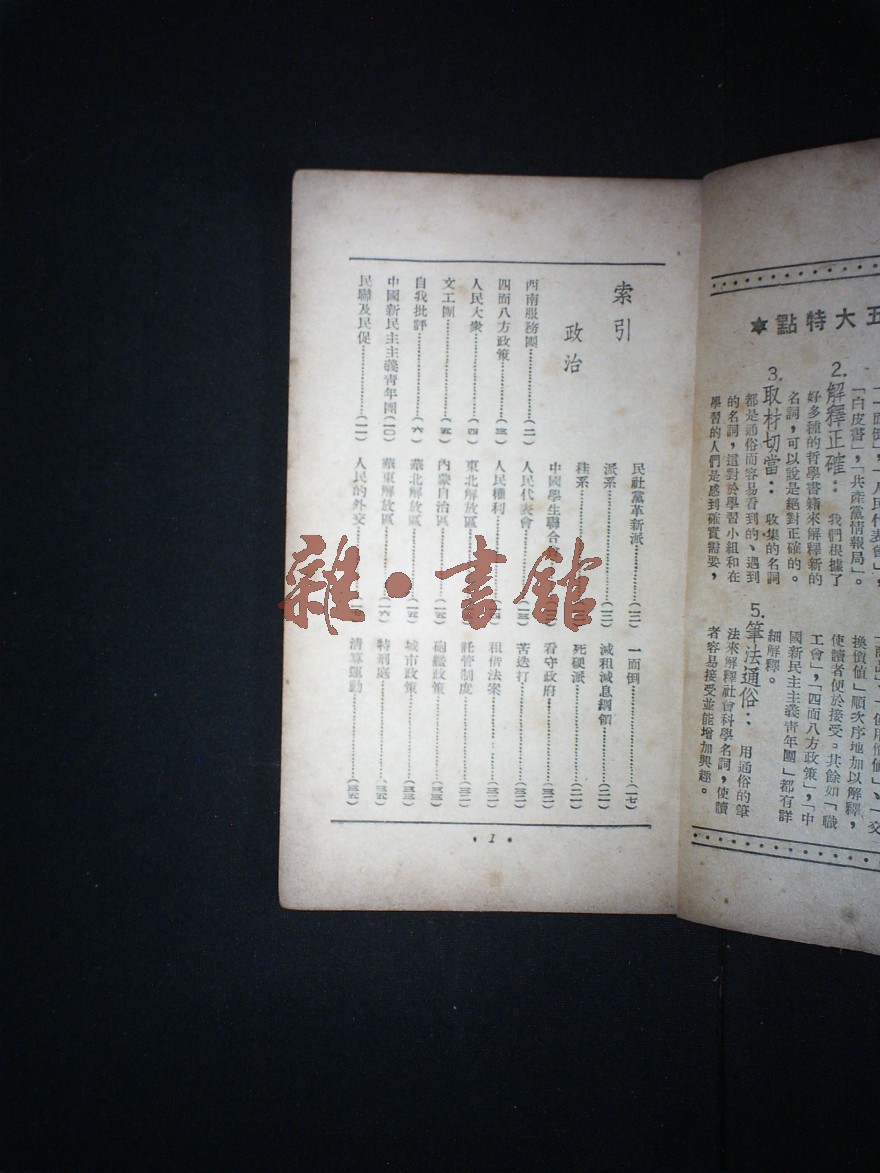 五大特點★
「一面倒」，「人民代表會」，
「白皮書」，「共產黨情報局」。
2.解釋正確：我們根據了
好多種的哲學書籍來解釋新的
名詞，可以說是絕對正確的。
3.取材切當：收集的名詞
都是通俗而容易看到的、遇到
的名詞，這對於學習小組和在
學習的人們是感到確實需要，
換價値」順次序地加以解釋，
使讀者便於接受。其餘如「職
工會」，「四面八方政策」，「中
國新民主主義青年團」都有詳
細解釋。
5.筆法通俗：用通俗的筆
法來解釋社會科學名詞，使讀
者容易接受並能增加興趣。
索引
政治
西南服務團…………(二)
四面八方政策…………(三)
人民大衆…………(四)
文工團…………(五)
自我批評…………(六)
中國新民主主義靑年團…………(一〇)
民聯及民促…………(一一)
民社黨革新派…………(一二)
派系…………(一二)
桂系
中國學生聯合會
人民代表會…………(一三)
人民權利…………(一四)
東北解放區
內蒙自治區…………(一五)
華北解放區…………(一五)
華東解放區…………(一六)
人民的外交
一面倒…………(一七)
減租減息綱領…………(二一)
死硬派…………(二一)
看守政府…………(三一)
苦迭打…………(三一)
租借法案…………(三二)
託管制度…………(三二)
砲艦政策…………(三三)
城市政策…………(三三)
特刑庭…………(三五)
清算運動…………(三五)
•1•
雜•書館